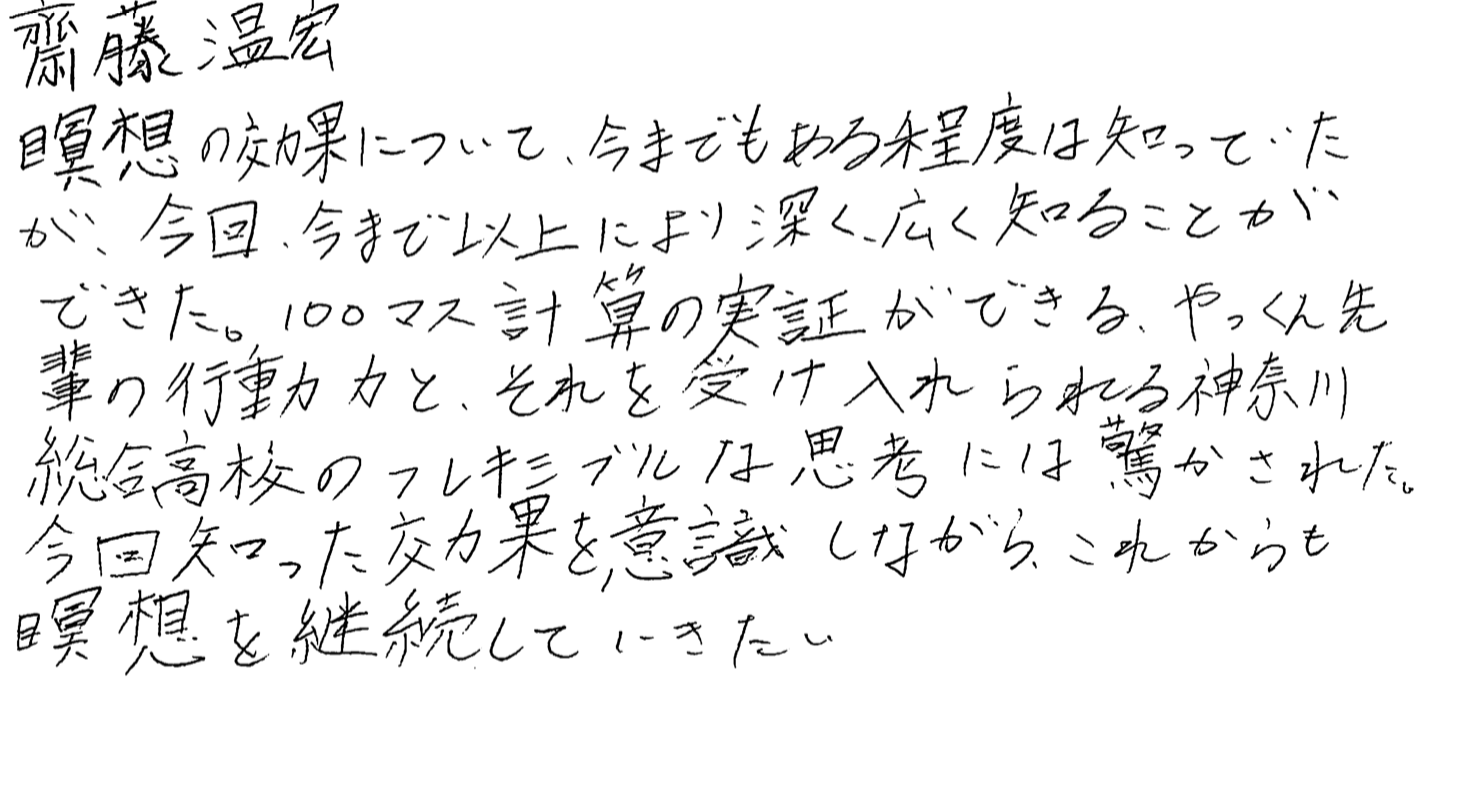 齋藤温宏
瞑想の効果について、今までもある程度は知っていた
が、今回、今まで以上により深く、広く知ることが
できた。100マス計算の実証ができる、やっくん先
輩の行動力と、それを受け入れられる神奈川
総合高校のフレキシブルな思考には驚かされた。
今回知った効果を意識しながら、これからも
瞑想を継続していきたい